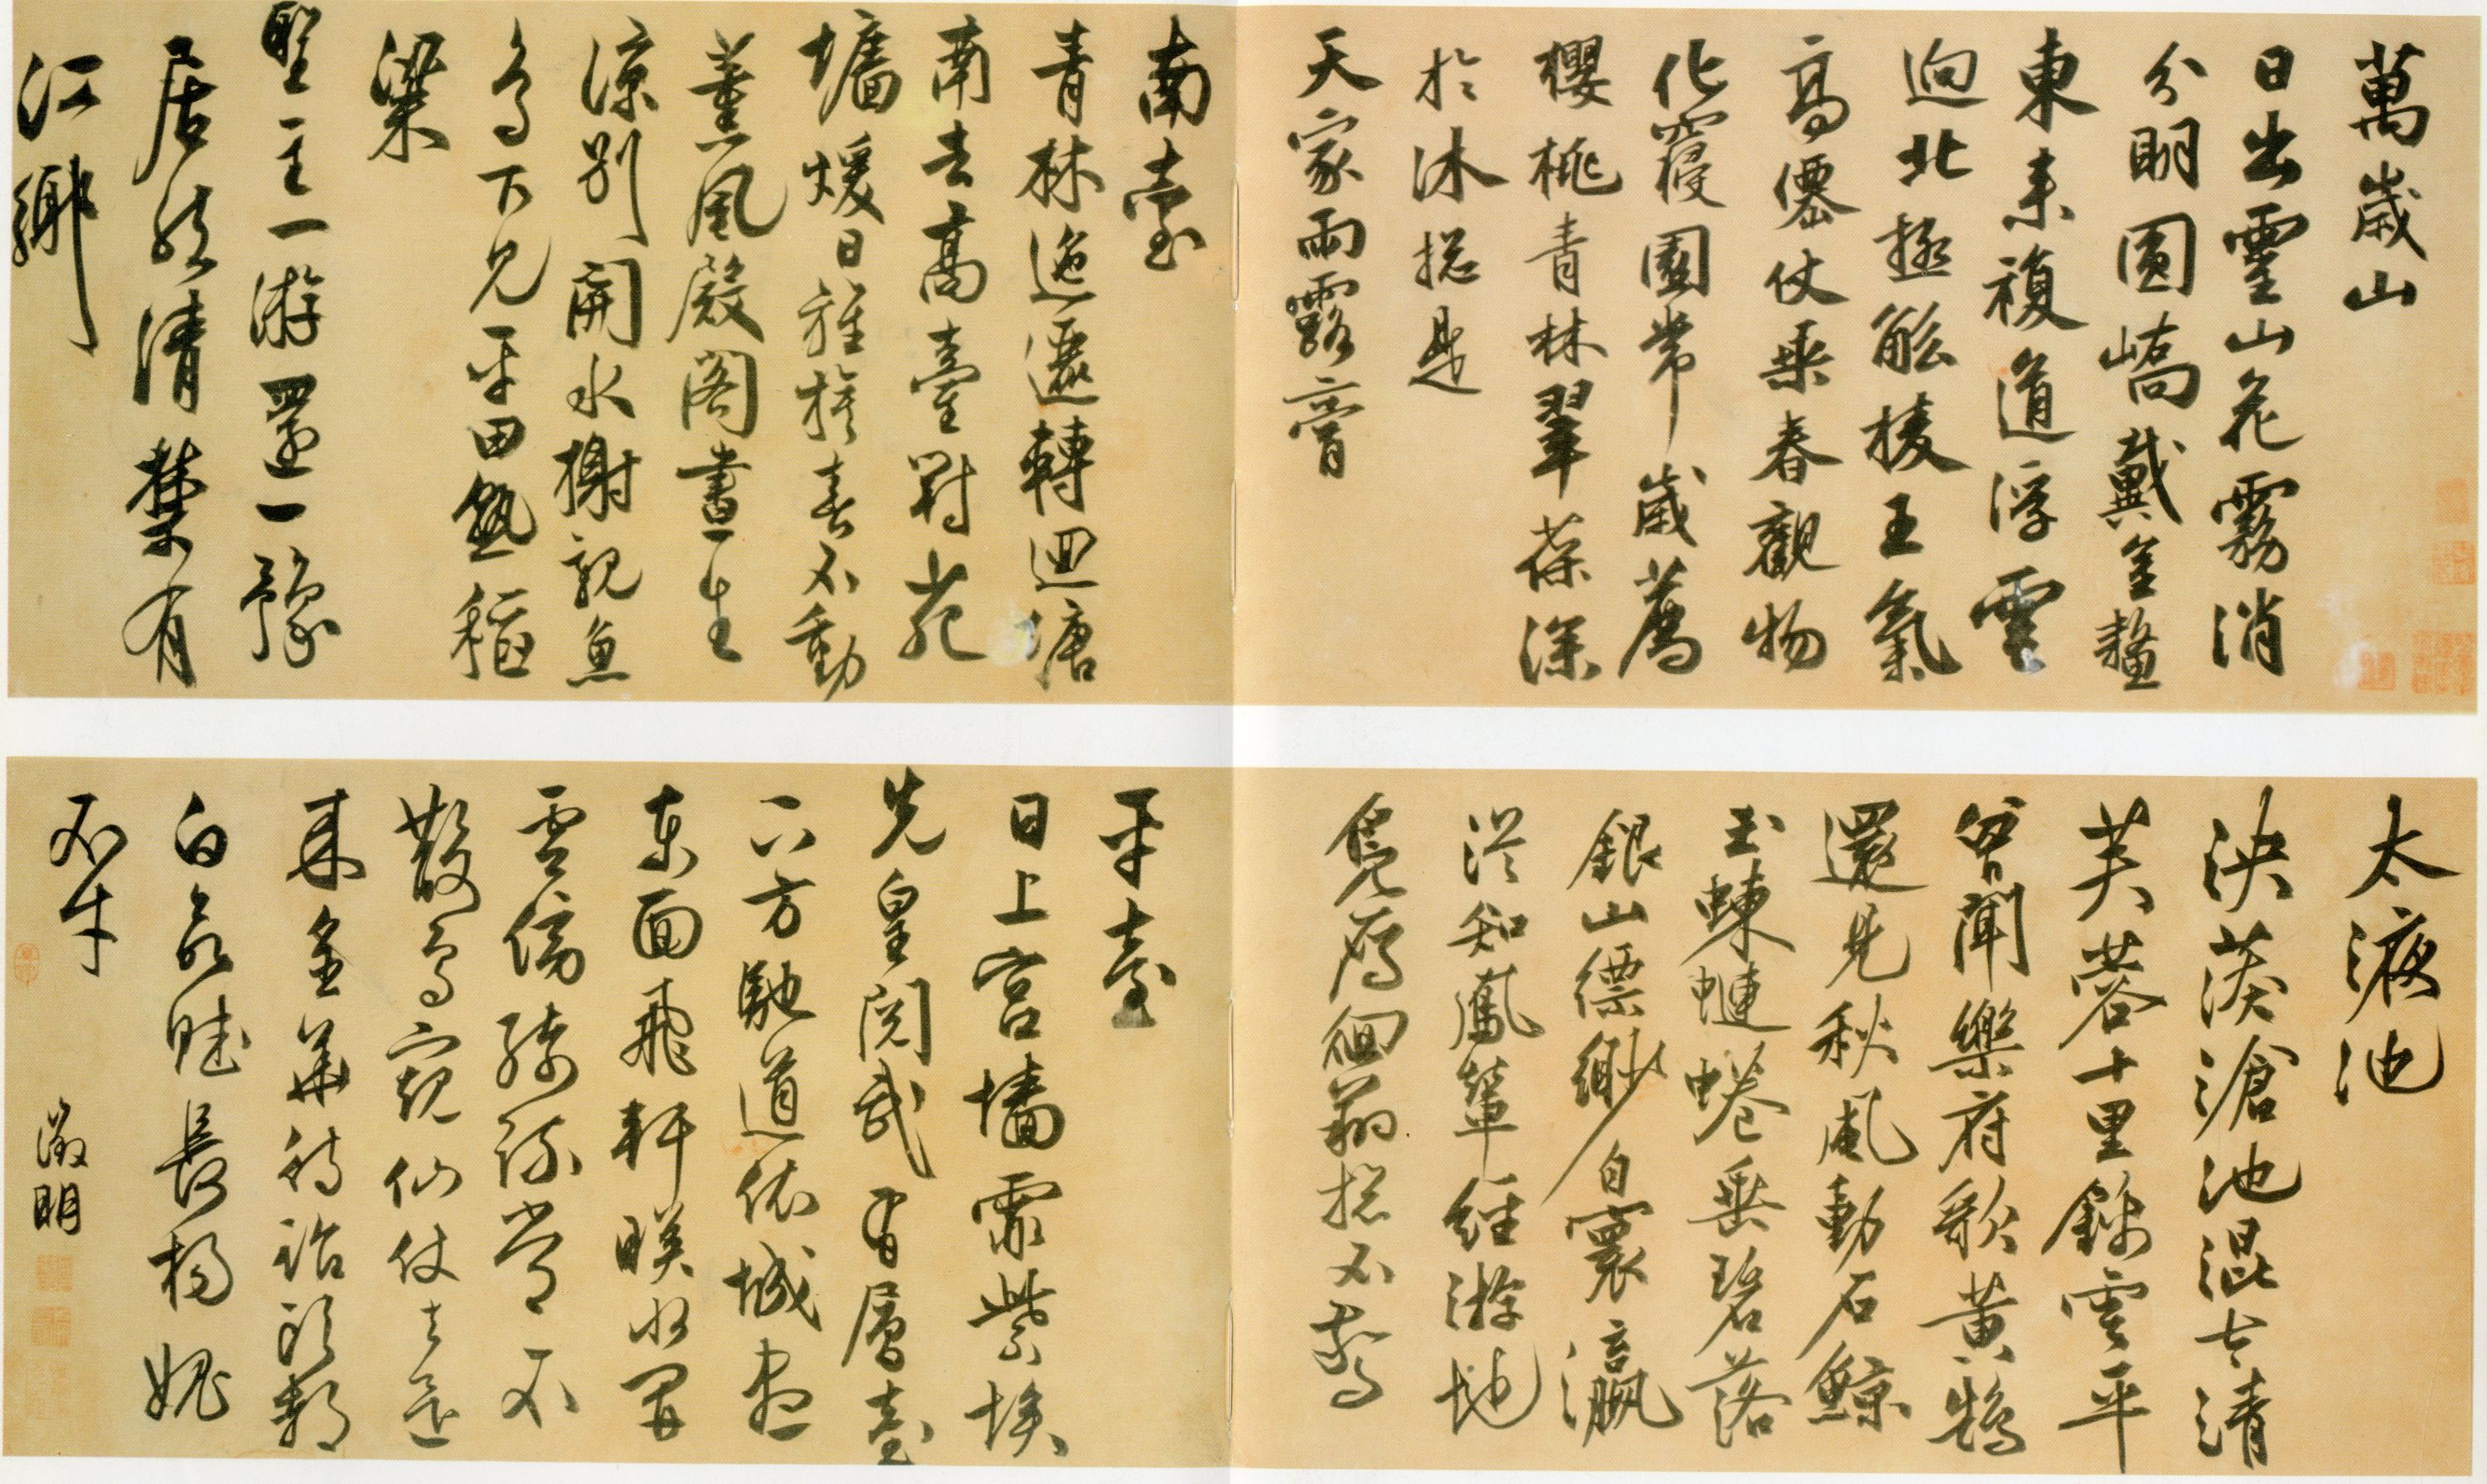 萬歲山
日出靈山花霧消
分明圓嶠戴金鼇
東来複道浮雲
迥北極觚棱王氣
高僊仗乘春觀物
化寢園常歲薦
櫻桃青林翠葆深
於沐揔是
天家雨露膏
南臺
青林迤邐轉迴塘
南去高臺對苑
墻煖日旌旗春不動
薰風殿閣晝生
涼別開水榭親魚
鳥下見平田熟稻
粱
聖主一游還一豫
居然清禁有
江鄉
太液池
泱漭滄池混太清
芙蓉十里錦雲平
曾聞樂府歌黃鵠
還見秋風動石鯨
玉蝀蜷垂碧落
銀山縹緲自寰瀛
從知鳳輦經游地
鳧鴈徊翔揔不驚
平臺
日上宮墻霏紫埃
先皇閱武有層臺
下方馳道依城盡
東面飛軒映水開
雲傍綺疏常不
散鳥窺仙仗去還
来金華待詔頭都
白欲賦長楊媿
不才
徵明